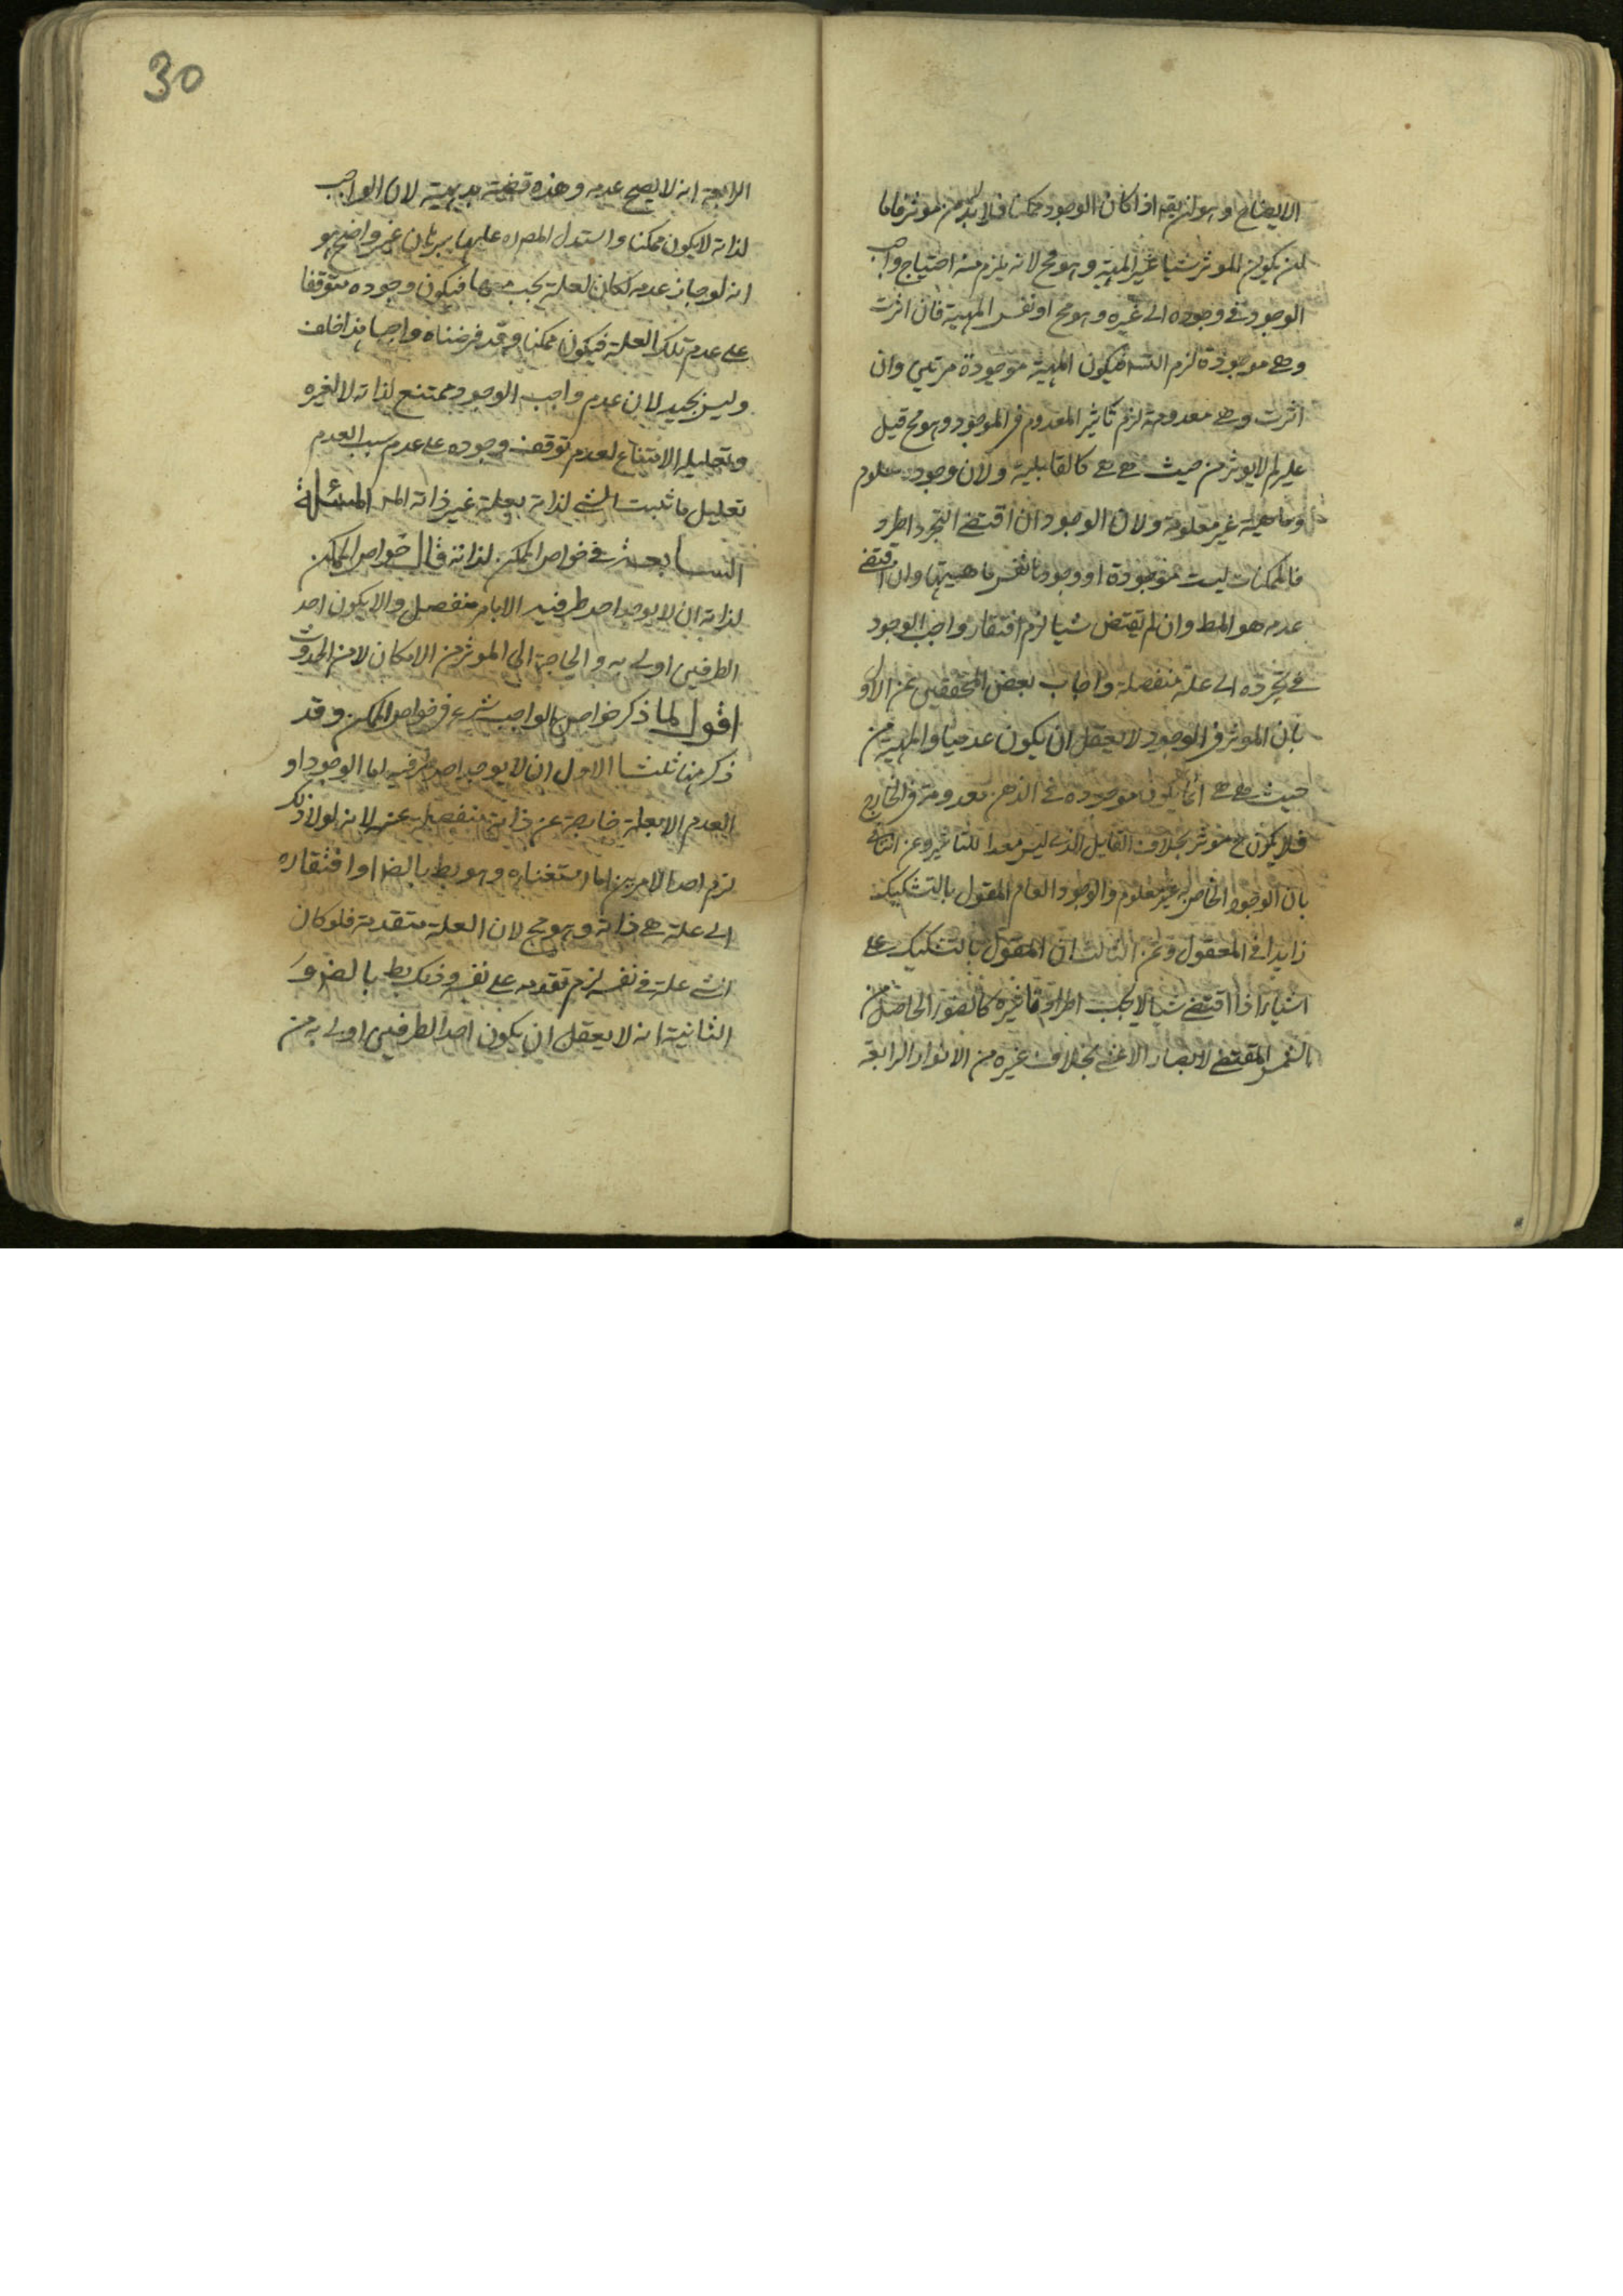 الايضاح وهو ان يقه اذا كان الوجود ممكنا فلا بد من موثر فاما
ان يكون الموثر شيا غير المهية وهو مح لانه يلزم منه احتياج واجب
الوجود في وجوده الى غيره وهو مح او نفس المهية فان اثرت
وهي موجودة لزم التسه فيكون المهية موجودة مرتين وان
اثرت وهي معدومة لزم تاثير المعدوم في الموجود وهو مح قيل
عليه لم لا يوثر من حيث هي هي كالقابلية ولان وجوده معلوم
وماهيته غير معلومة ولان الوجود ان اقتضى التجرد اطرد
فالممكنات ليست موجودة او وجودها نفس ماهيتها وان اقتضى
عدمه هو المط وان لم يقتض شيا لزم افتقار واجب الوجود
في تجرده الى علة منفصلة واجاب بعض المحققين عن الاول
بان الموثر في الوجود لا يعقل ان يكون عدميا والمهية من
حيث هي هي انما يكون موجودة في الذهن معدومة في الخارج
فلا يكون ح موثر بخلاف القابل الذي ليس معدا للتاثير وعن الثاني
بان الوجود الخاص به غير معلوم والوجود العام المقول بالتشكيك
زايد في المعقول وعن الثالث ان المقول بالتشكيك على
اشياء اذا اقتضى شيا لا يجب اطراده في غيره كالضوء الحاصل من
الشمس المقتضى لابصار الاعشى بخلاف غيره من الانوار الرابعة
30
الرابعة انه لا يصح عدمه وهذه قضية بديهية لان الواجب
لذاته لا يكون ممكنا واستدل المصره عليها ببرهان غير واضح هو
انه لو جاز عدمه لكان لعلة يجب معها فيكون وجوده متوقفا
على عدم تلك العلة فيكون ممكنا وقد فرضناه واجبا هذا خلف
وليس بجيد لان عدم واجب الوجود ممتنع لذاته لا لغيره
وتعليل الامتناع لعدم توقف وجوده على عدم سبب العدم
تعليل ما ثبت للشي لذاته بعلة غير ذاته المسئلة
السابعة في خواص الممكن لذاته قال خواص الممكن
لذاته ان لا يوجد احد طرفيه الا بامر منفصل والا يكون احد
الطرفين اولى به والحاجة الى الموثر من الامكان لا من الحدوث
اقول لما ذكر خواص الواجب شرع في خواص الممكن وقد
ذكر منها ثلثا الاول ان لا يوجد احد طرفيه اما الوجود او
العدم الا بعلة خارجة عن ذاته منفصلة عنه لانه لولا ذلك
لزم احد الامرين اما استغناؤه وهو بط بالضر او افتقاره
الى علة هي ذاته وهو مح لان العلة متقدمة فلو كان
الشي علة في نفسه لزم تقدمه على نفسه وذلك بط بالضروَ
الثانية انه لا يعقل ان يكون احد الطرفين اولى به من